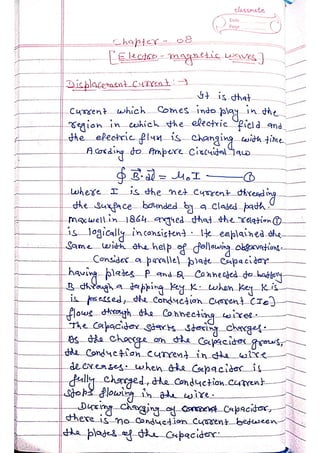 classmate
Date
Page
Chapter - 08
[Electro-magnetic waves]
Displacement Current :→
It is that
current which comes into play in the
region in which the electric field and
the electric flux is changing with time
Acording to Ampere Circuital law
∮ B⃗·dl⃗ = μ₀I — ①
where I is the net current threading
the surface bounded by a closed path.
Maxwell in 1864 argued that the relation ①
is logically inconsistent. He explained the
same with the help of following observations.
Consider a parallel plate capacitor
having plates P and Q connected to battery
B through a tapping key K. when key K is
is pressed, the conduction current (Ic)
flows through the connecting wires.
The capacitor starts storing charges.
As the charge on the capacitor grows,
the conduction current in the wire
decreases. when the capacitor is
fully charged, the conduction current
stops flowing in the wire.
During charging of capacitor,
there is no conduction current between
the plates of the capacitor.